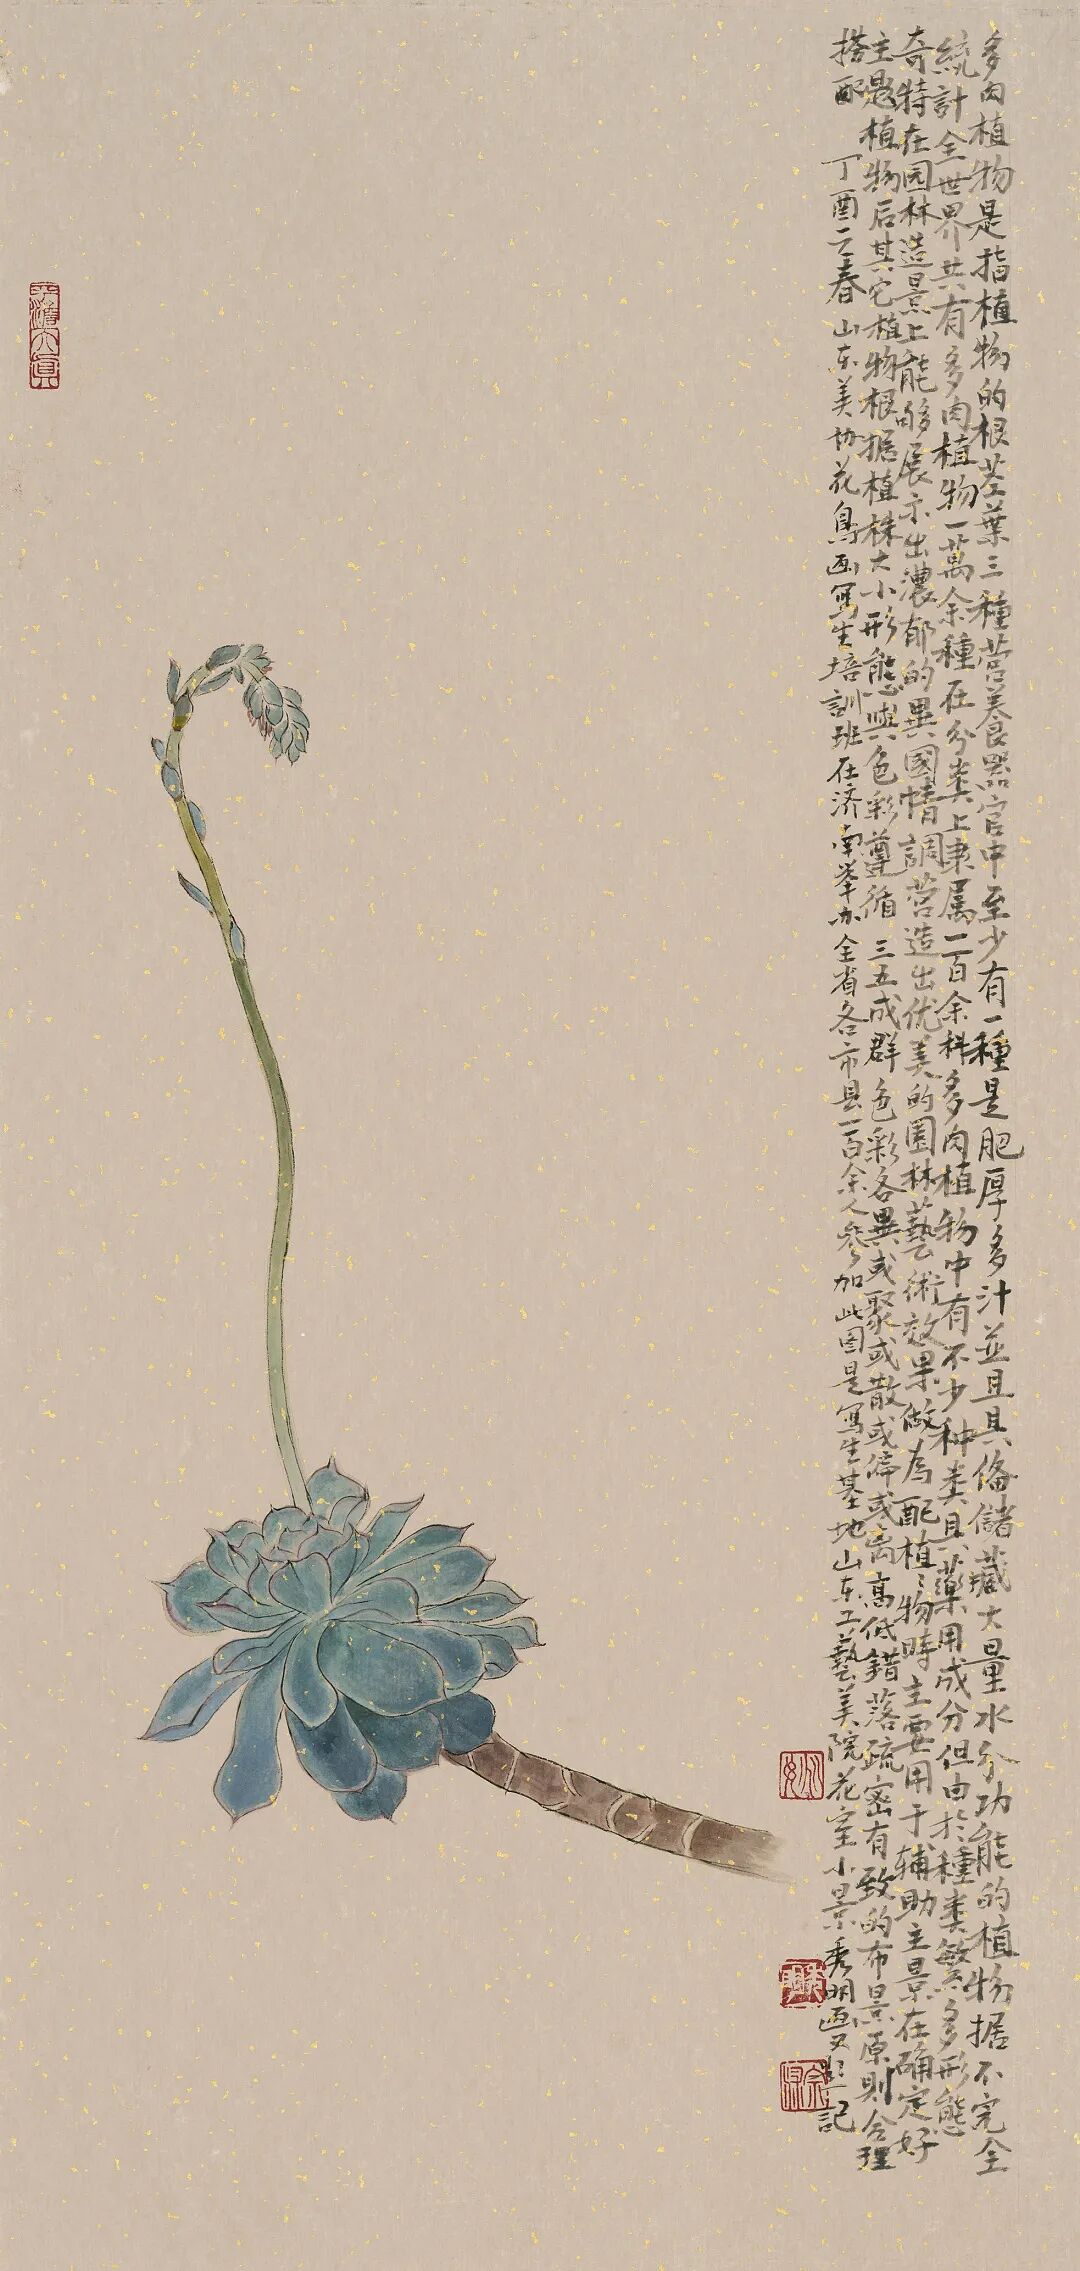 多肉植物是指植物的根茎葉三種营养器官中至少有一種是肥厚多汁並且具俻儲藏大量水分功能的植物据不完全
統計全世界共有多肉植物一萬余種在分类上隶属一百余科多肉植物中有不少种类具藥用成分但由於種类繁多形態
奇特在园林造景上能够展示出濃郁的異國情調营造出优美的園林藝術效果做為配植植物時主要用于辅助主景在确定好
主是植物后其它植物根据植株大小形態與色彩遵循三五成群色彩各異或聚或散或停或离高低錯落疏密有致的布景原則合理
搭配 丁酉之春山东美协花鳥画寫生培訓班在济南举办全省各市县一百余人参加此图是寫生基地山东工藝美院花室小景秀明画又題記